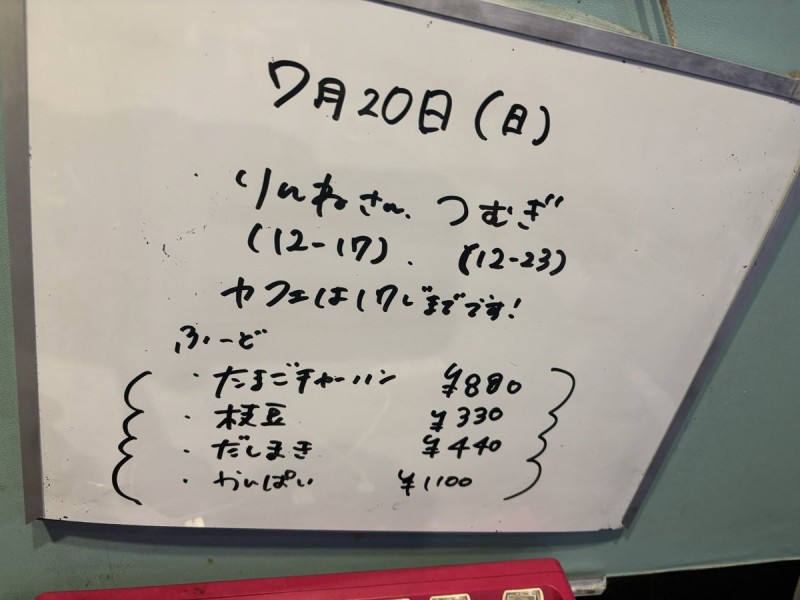 7月20日(日)
りんねさん、つむぎ
(12-17). (12-23)
カフェは17じまでです!
ふーど
・たまごチャーハン ¥880
・枝豆 ¥330
・だしまき ¥440
・かんぱい ¥1100